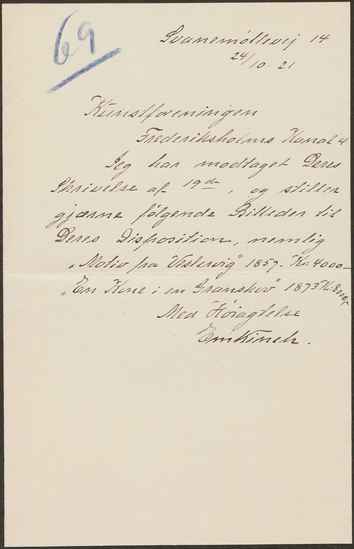 69
Svanemøllevej 14
24/10 21
Kunstforeningen
Frederiksholms Kanal 4
Jeg har modtaget Deres
Skrivelse af 19de, og stiller
gjærne følgende Billeder til
Deres Disposition, nemlig
"Motiv fra Vestervig" 1857. Kr. 4000—
"En Kone i en Granskov" 1873 Kr.
Med Høiagtelse